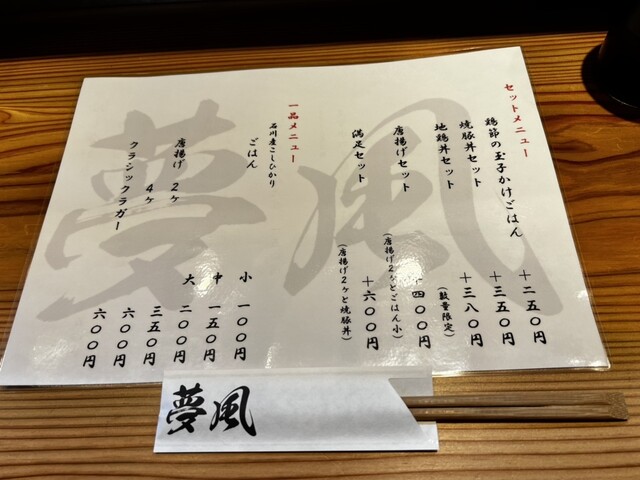 セットメニュー
鶏節の玉子かけごはん +二五〇円
焼豚丼セット +三五〇円
地鶏丼セット +三八〇円
(数量限定)
唐揚げセット +四〇〇円
(唐揚げ2ヶとごはん小)
満足セット +六〇〇円
(唐揚げ2ヶと焼豚丼)
一品メニュー
石川産こしひかり
ごはん 小 一〇〇円
中 一五〇円
大 二〇〇円
唐揚げ 2ヶ 三五〇円
4ヶ 六〇〇円
クラシックラガー 六〇〇円
夢風
夢風